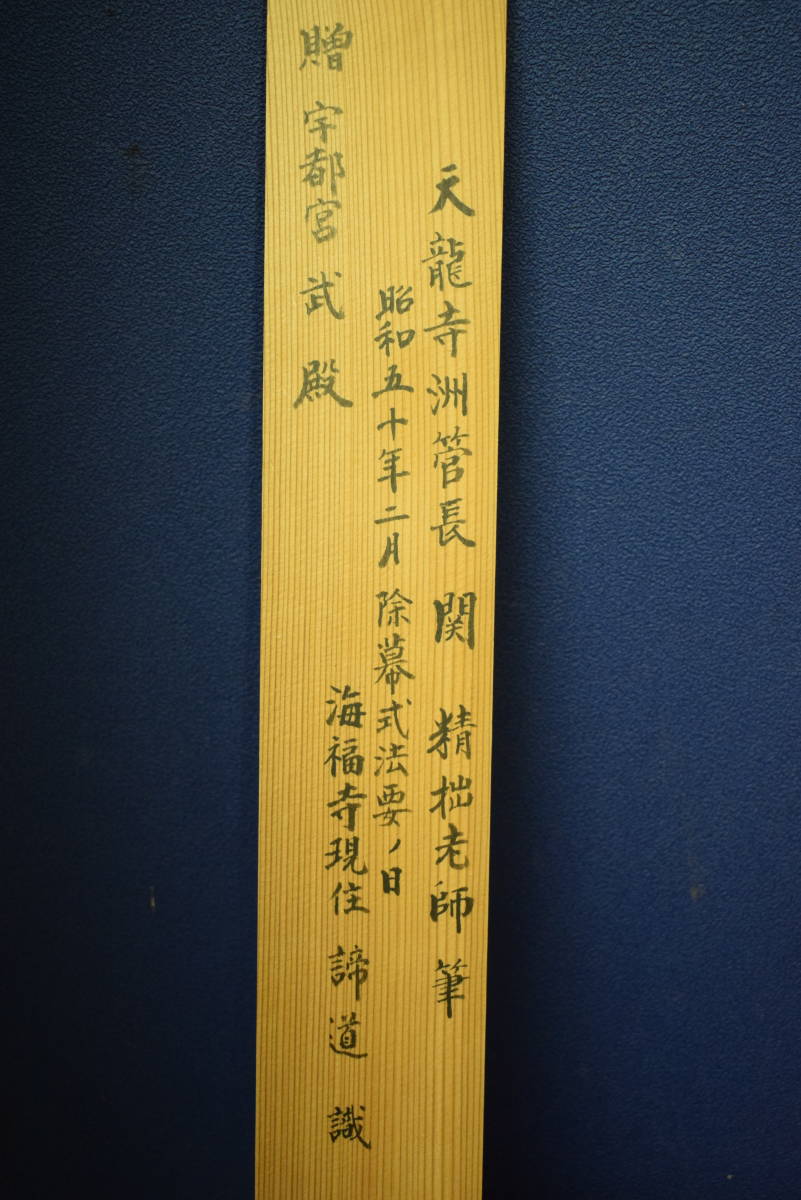 天龍寺洲管長 関 精拙老師 筆
昭和五十年二月 除幕式法要ノ日
海福寺現住 諦道 識
贈 宇都宮 武 殿